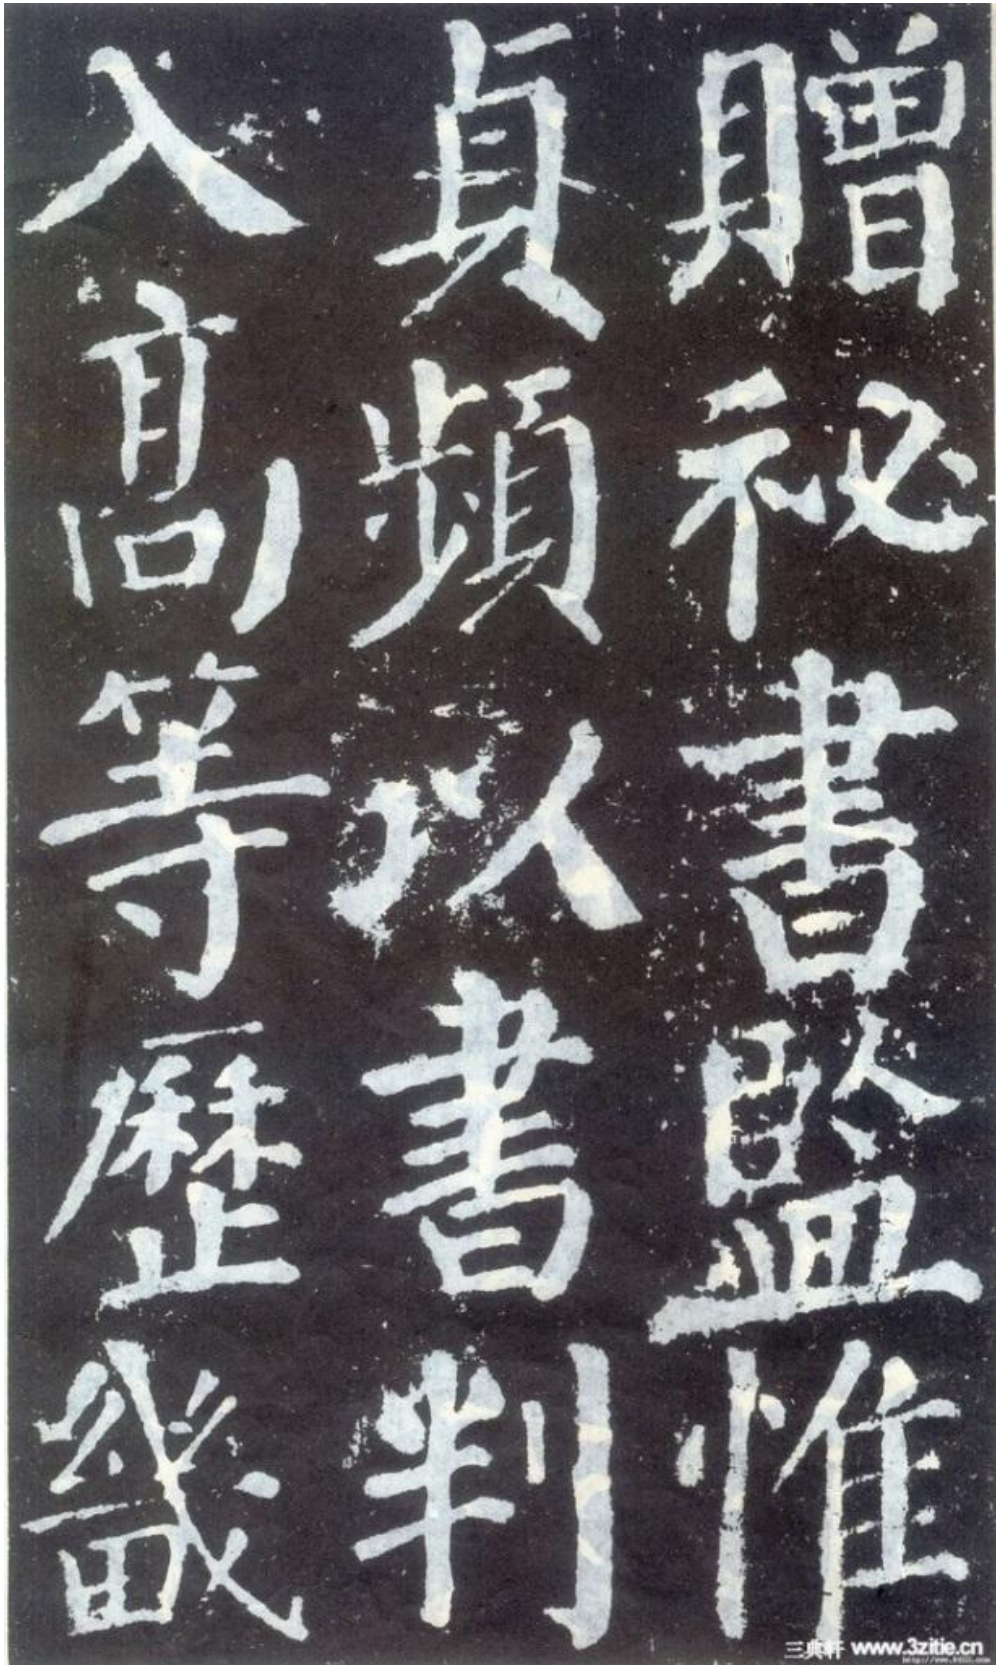 贈祕書監惟
貞頻以書判
入高等歷畿
三典轩 www.3zitie.cn